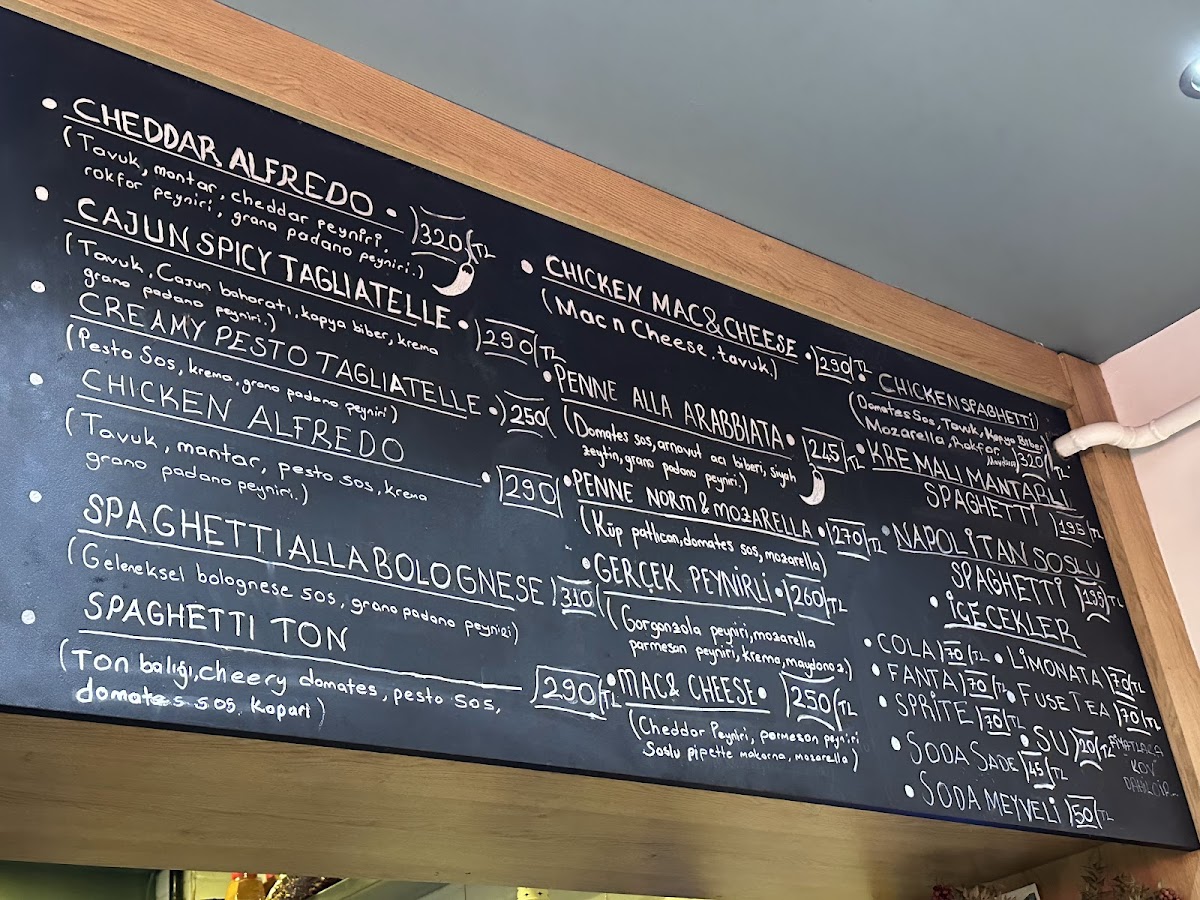 • CHEDDAR ALFREDO • 320 TL
(Tavuk, mantar, cheddar peyniri,
rokfor peyniri, grana padano peyniri.)
• CAJUN SPICY TAGLIATELLE • 290 TL
(Tavuk, Cajun baharatı, kapya biber, krema
grano padano peyniri.)
• CREAMY PESTO TAGLIATELLE • 250
(Pesto Sos, krema, grano padano peyniri)
• CHICKEN ALFREDO • 290
(Tavuk, mantar, pesto sos, krema
grano padano peyniri.)
• SPAGHETTI ALLA BOLOGNESE 310
(Geleneksel bolognese sos, grano padano peyniri)
• SPAGHETTI TON 290 TL
(Ton balığı, cheery domates, pesto sos,
domates sos, Kapari)
• CHICKEN MAC&CHEESE • 290 TL
(Mac n Cheese, tavuk)
• PENNE ALLA ARABBIATA • 245 TL
(Domates sos, arnavut acı biberi, siyah
zeytin, grano padano peyniri.)
• PENNE NORM & MOZARELLA • 270 TL
(Küp patlıcan, domates sos, mozarella)
• GERÇEK PEYNİRLİ • 260 TL
(Gorgonzola peyniri, mozarella
parmesan peyniri, krema, maydonoz)
• MAC& CHEESE • 250 TL
(Cheddar Peyniri, parmesan peyniri
Soslu pipette makarna, mozarella)
• CHICKEN SPAGHETTI
(Domates Sos, Tavuk, Kapya Biber
Mozarella, Rokfor 320 TL
• KREMALI MANTARLI
SPAGHETTI 195 TL
• NAPOLİTAN SOSLU
SPAGHETTI 195 TL
• İÇECEKLER
• COLA 70 TL • LİMONATA 70 TL
• FANTA 70 TL • FUSE TEA 70 TL
• SPRİTE 70 TL • SU 20 TL
• SODA SADE 45 TL
• SODA MEYVELİ 50 TL
FİYATLARA
KDV
DAHİLDİR...